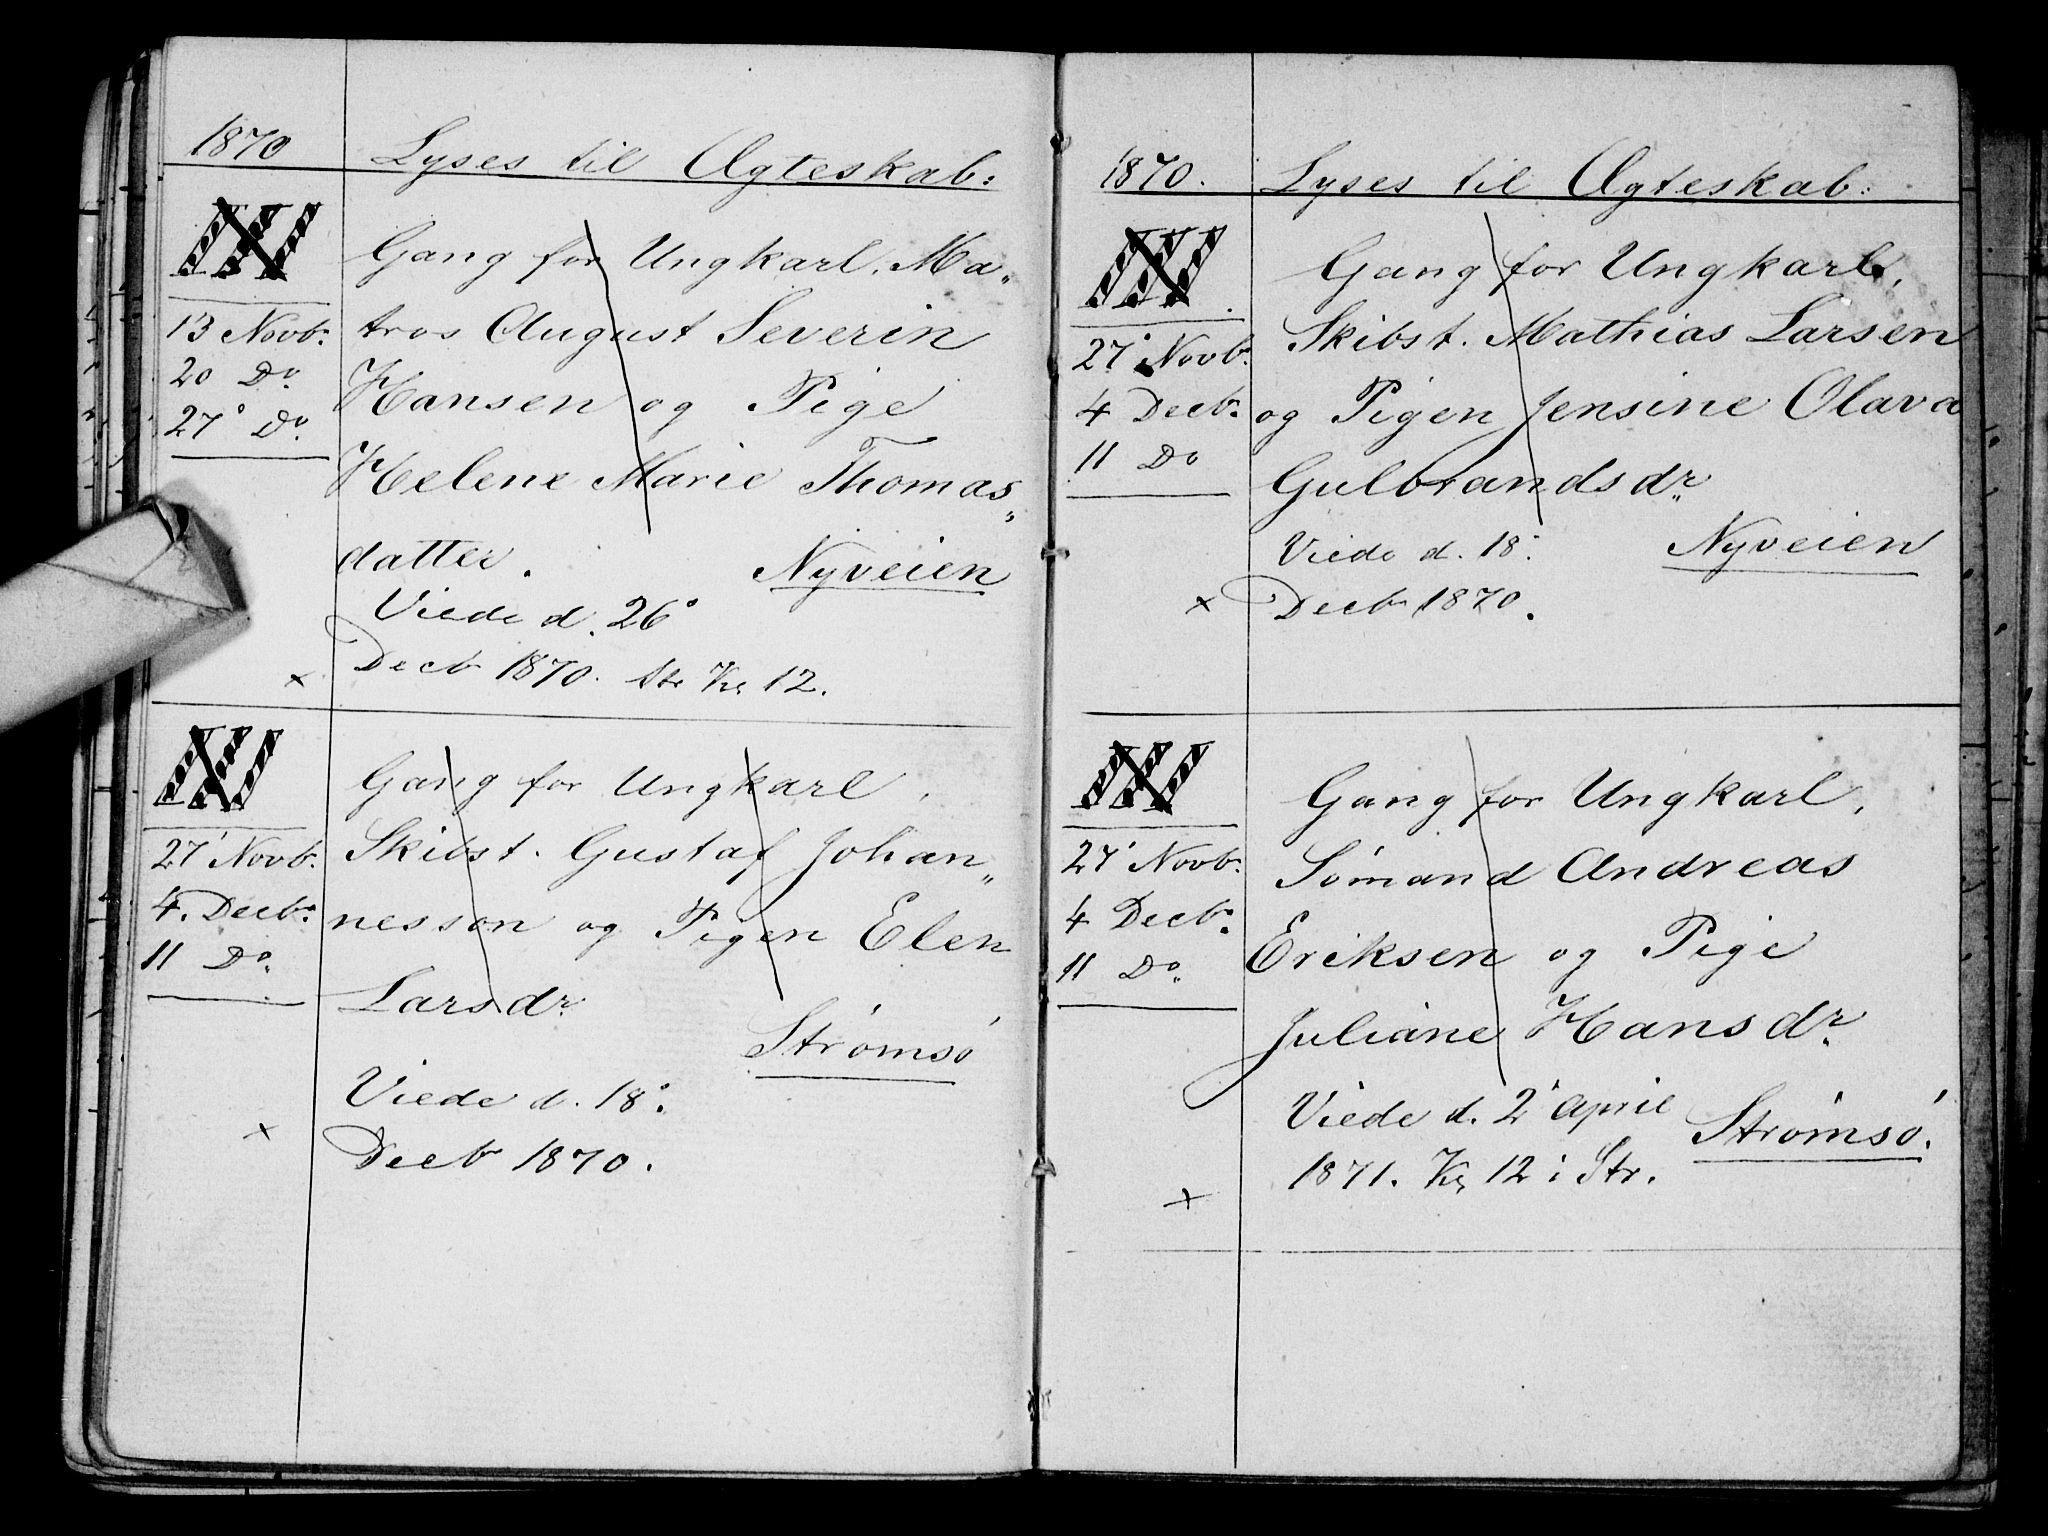 1870
Lyses til Ægteskab:
III
Gang for Ungkarl. Ma„
13 Novb:
tros August Severin
20 Do
Hansen og Pige
27° Do
Helene Marie Thomas„
datter.
Nyveien
Viede d. 26°
x Decb 1870. Str Kr 12.
III
Gang for Ungkarl,
27' Novb:
Skibst. Gustaf Johan„
4. Decb:
nesson og Pigen Elen
11 Do
Larsdr
Strømsø
Viede d. 18°.
x Decb 1870.
1870.
Lyses til Ægteskab:
III
Gang for Ungkarl,
27° Novb:
Skibst. Mathias Larsen
4 Decb:
og Pigen Jensine Olava
11 Do
Gulbrandsdr
Viede d. 18°.
Nyveien
x Decb 1870.
III
Gang for Ungkarl,
27' Novb:
Sømand Andreas
4 Decb:
Eriksen og Pige
11 Do
Juliane Hansdr
Viede d. 2' April
Strømsø.
1871. Kr 12 i Str.
x